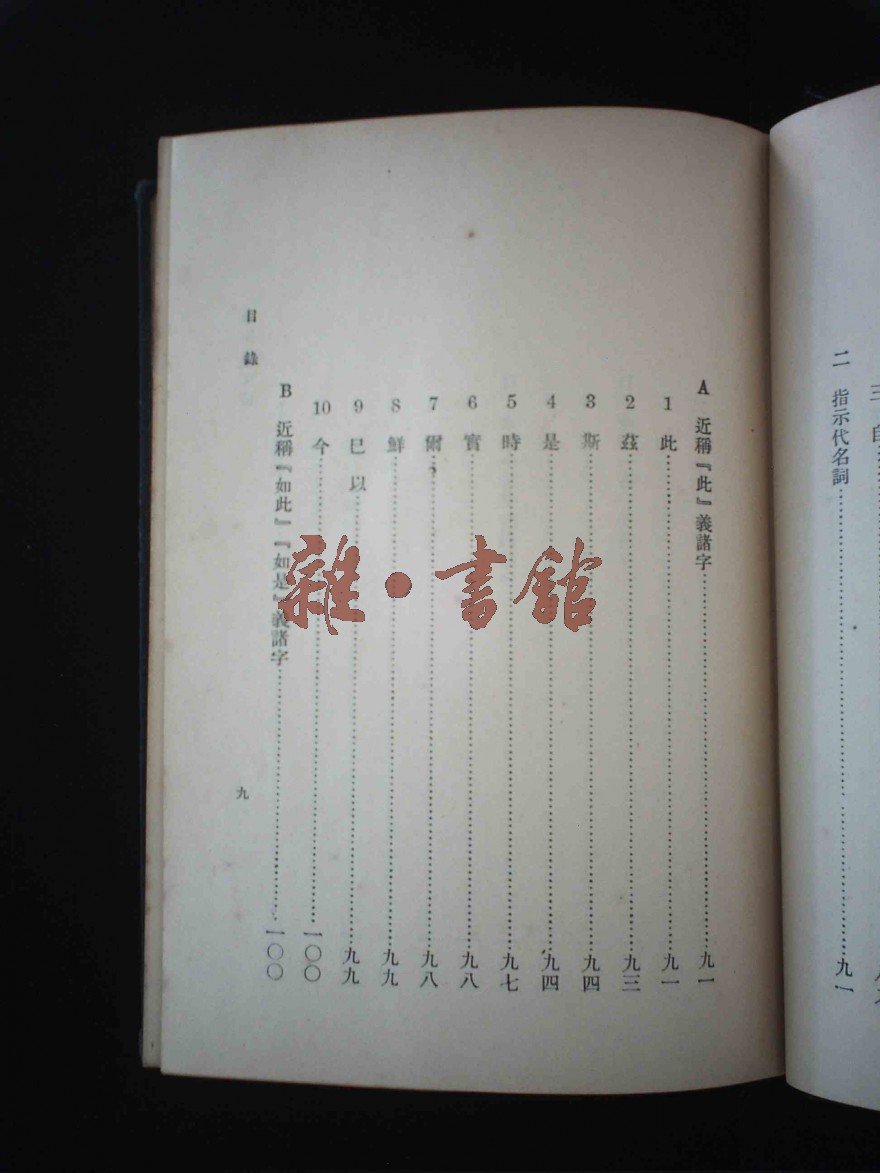 二　指示代名詞……九一
A　近稱『此』義諸字……九一
1　此……九一
2　茲……九三
3　斯……九四
4　是……九四
5　時……九七
6　實……九八
7　爾……九八
8　鮮……九九
9　已　以……九九
10　今……一〇〇
B　近稱『如此』『如是』義諸字……一〇〇
目錄
九
雜·書館